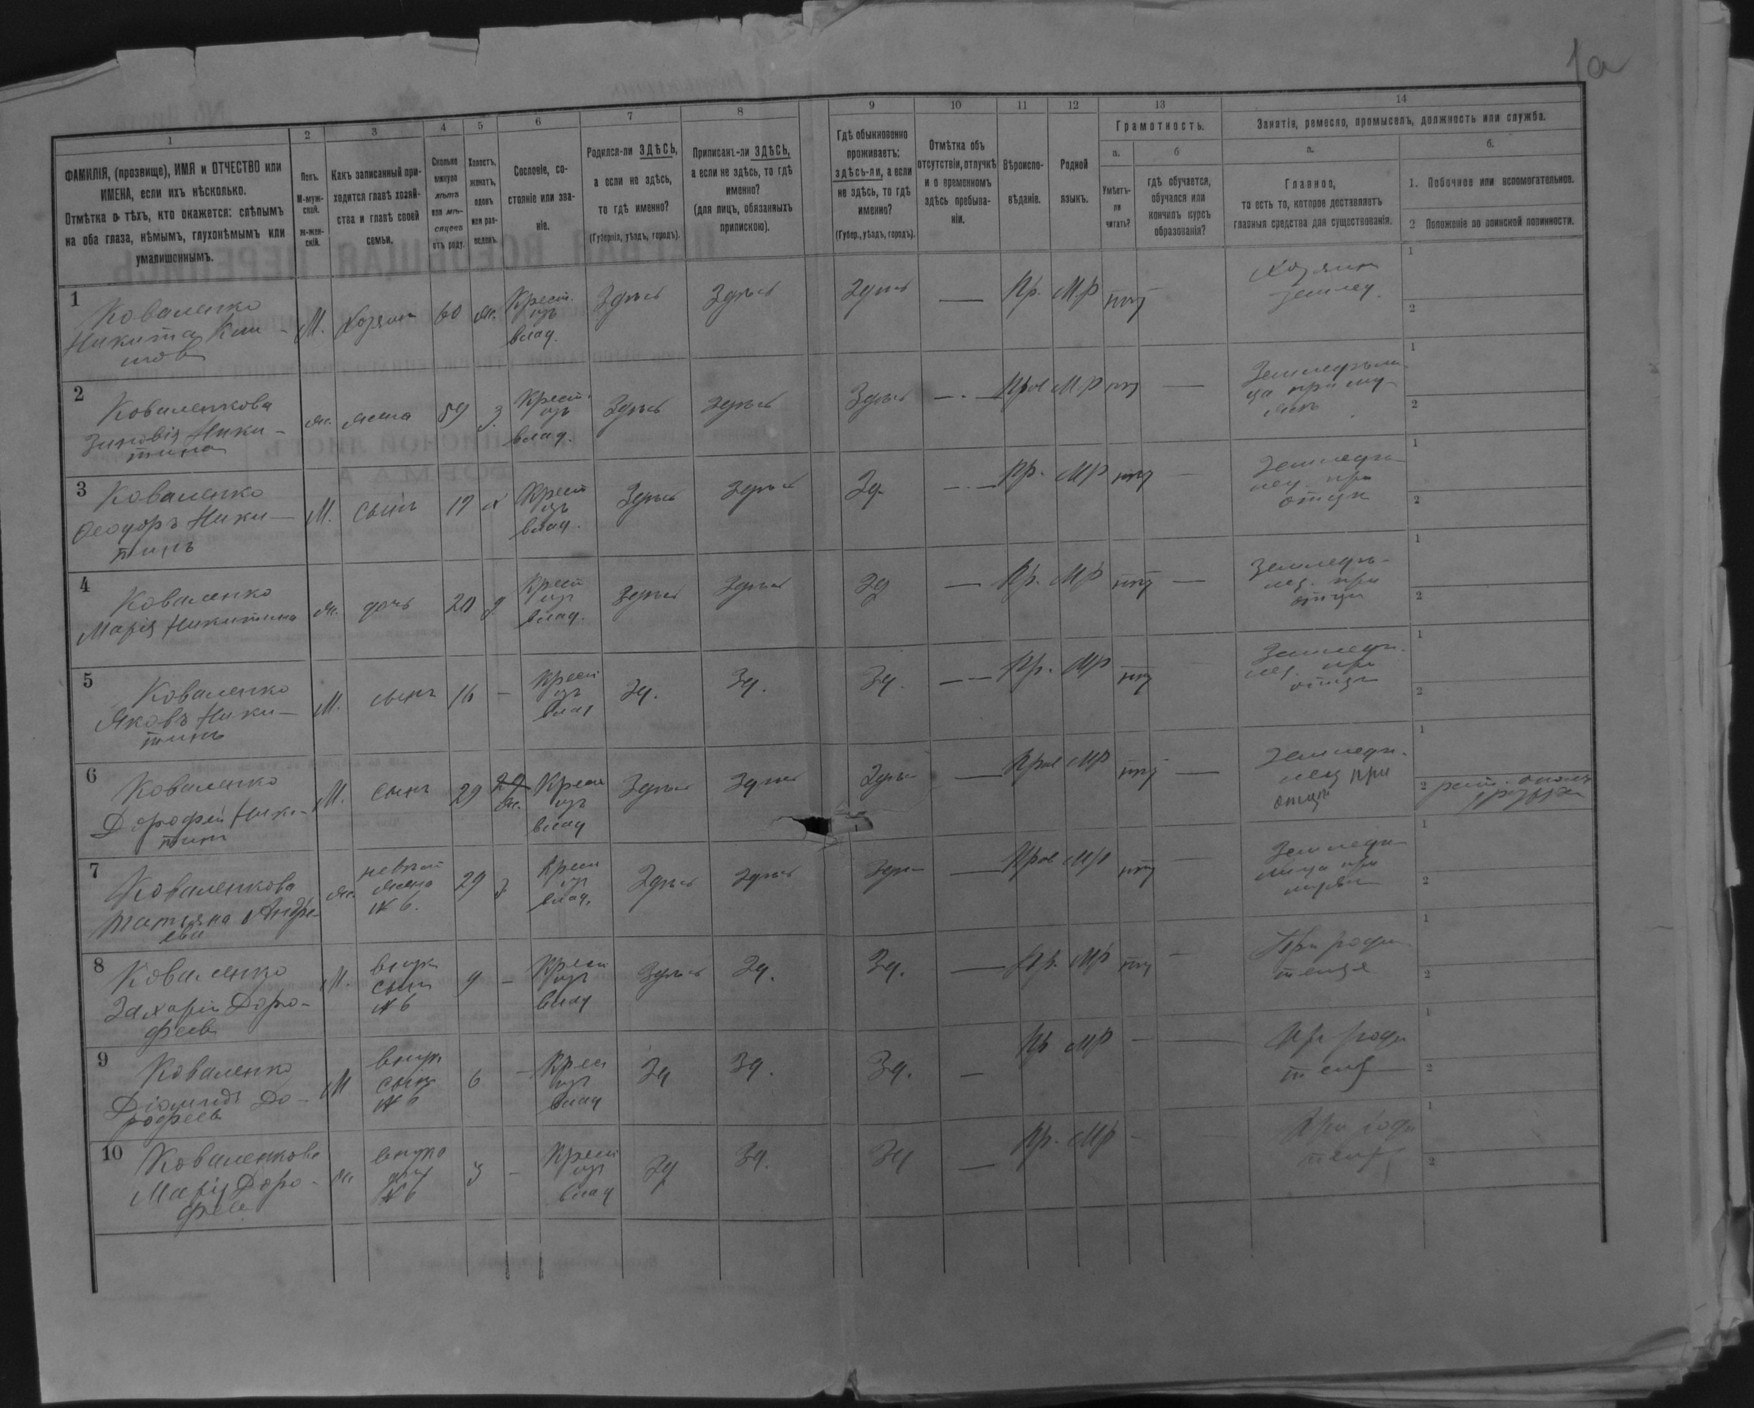 1а
1 2 3 4 5 6 7 8 9 10 11 12 13 14
ФАМИЛІЯ, (прозвище), ИМЯ и ОТЧЕСТВО или
ИМЕНА, если ихъ нѣсколько.
Отмѣтка о тѣхъ, кто окажется: слѣпымъ
на оба глаза, нѣмымъ, глухонѣмымъ или
умалишоннымъ.
Полъ.
М-муж-
ской.
ж-жен-
скій.
Какъ записанный при-
ходится главѣ хозяй-
ства и главѣ своей
семьи.
Сколько
минуло
лѣтъ
или мѣ-
сяцевъ
отъ роду.
Холостъ,
женатъ,
вдовъ
или раз-
веденъ.
Сословіе, со-
стояніе или зва-
ніе.
Родился-ли ЗДѢСЬ,
а если не здѣсь,
то гдѣ именно?
(Губернія, уѣздъ, городъ).
Приписанъ-ли ЗДѢСЬ,
а если не здѣсь, то гдѣ
именно?
(для лицъ, обязанныхъ
припискою).
Гдѣ обыкновенно
проживаетъ:
здѣсь-ли, а если
не здѣсь, то гдѣ
именно?
(Губер., уѣздъ, городъ).
Отмѣтка объ
отсутствіи, отлучкѣ
и о временномъ
здѣсь пребыва-
ніи.
Вѣроиспо-
вѣданіе.
Родной
языкъ.
Грамотность.
а.
Умѣетъ-
ли
читать?
б
гдѣ обучается,
обучался или
кончилъ курсъ
образованія?
Занятіе, ремесло, промыселъ, должность или служба.
а.
Главное,
то есть то, которое доставляетъ
главныя средства для существованія.
б.
1. Побочное или вспомогательное.
2 Положеніе по воинской повинности.
1
Коваленко
Никита
М. Хозяин 60 ж. Крест. изъ влад. Здѣсь Здѣсь Здѣсь — Пр. МР нѣт
Хозяин
землед.
1
2
2
Коваленкова
Зиновія Ники-
тина
ж. жена 59 з. Крест. изъ влад. Здѣсь Здѣсь Здѣсь — Прав МР нѣт —
1
2
3
Коваленко
Феодоръ Ники-
тинъ
М. сынъ Крест изъ влад. Здѣсь Здѣсь Зд. — Пр. МР нѣт —
при
отцѣ
1
2
4
Коваленко
Марія Никитина
ж. дочь Крест изъ влад. Здѣсь Здѣсь Зд — Пр. МР нѣт —
при
отцѣ
1
2
5
Коваленко
Яковъ Ники-
тинъ
М. сынъ 16 — Крест изъ влад Зд. Зд. Зд. — Пр. МР нѣт
при
отцѣ
1
2
6
Коваленко
Дорофей Ники-
тинъ
М. сынъ 29 ж. Крест изъ влад Здѣсь Здѣсь Здѣсь — Прав МР нѣт —
при
отцѣ
1
2
7
Коваленкова
Татьяна Андре-
ева
ж. жена № 6. 29 з Крест изъ влад. Здѣсь Здѣсь Здѣсь — Прав МР нѣт —
при
мужѣ
1
2
8
Коваленко
Захарій Доро-
феев
М. внукъ сынъ № 6 9 — Крест изъ влад Здѣсь Зд. Зд. — Пр. МР нѣт —
При роди
телях
1
2
9
Коваленко
До-
рофеевъ
М внукъ сынъ № 6 6 — Крест изъ влад Зд Зд. Зд. — Пр МР —
При роди
1
2
10
Коваленкова
Марія Доро-
феев
ж внука доч № 6 3 — Крест изъ влад Зд Зд. Зд — Пр. МР -
При роди
1
2